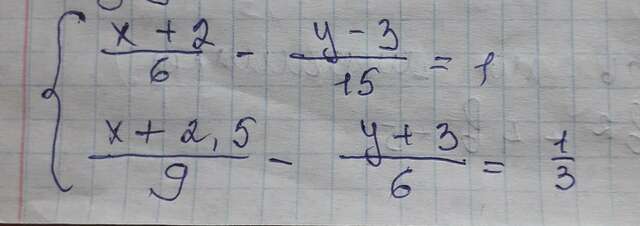 { (x + 2)/6 - (y - 3)/15 = 1
(x + 2,5)/9 - (y + 3)/6 = 1/3